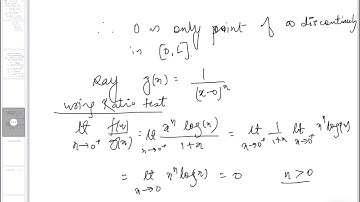 ∴ 0 is only point of ∞ discontinuity
in [0, 1].
Say g(x) = 1/(x-0)^n
using Ratio test
lt x→0+ f(x)/g(x) = lt x→0+ x^n log(x)/1+x = lt x→0+ 1/1+x lt x→0+ x^n log(x)
= lt x→0 x^n log x = 0 n > 0